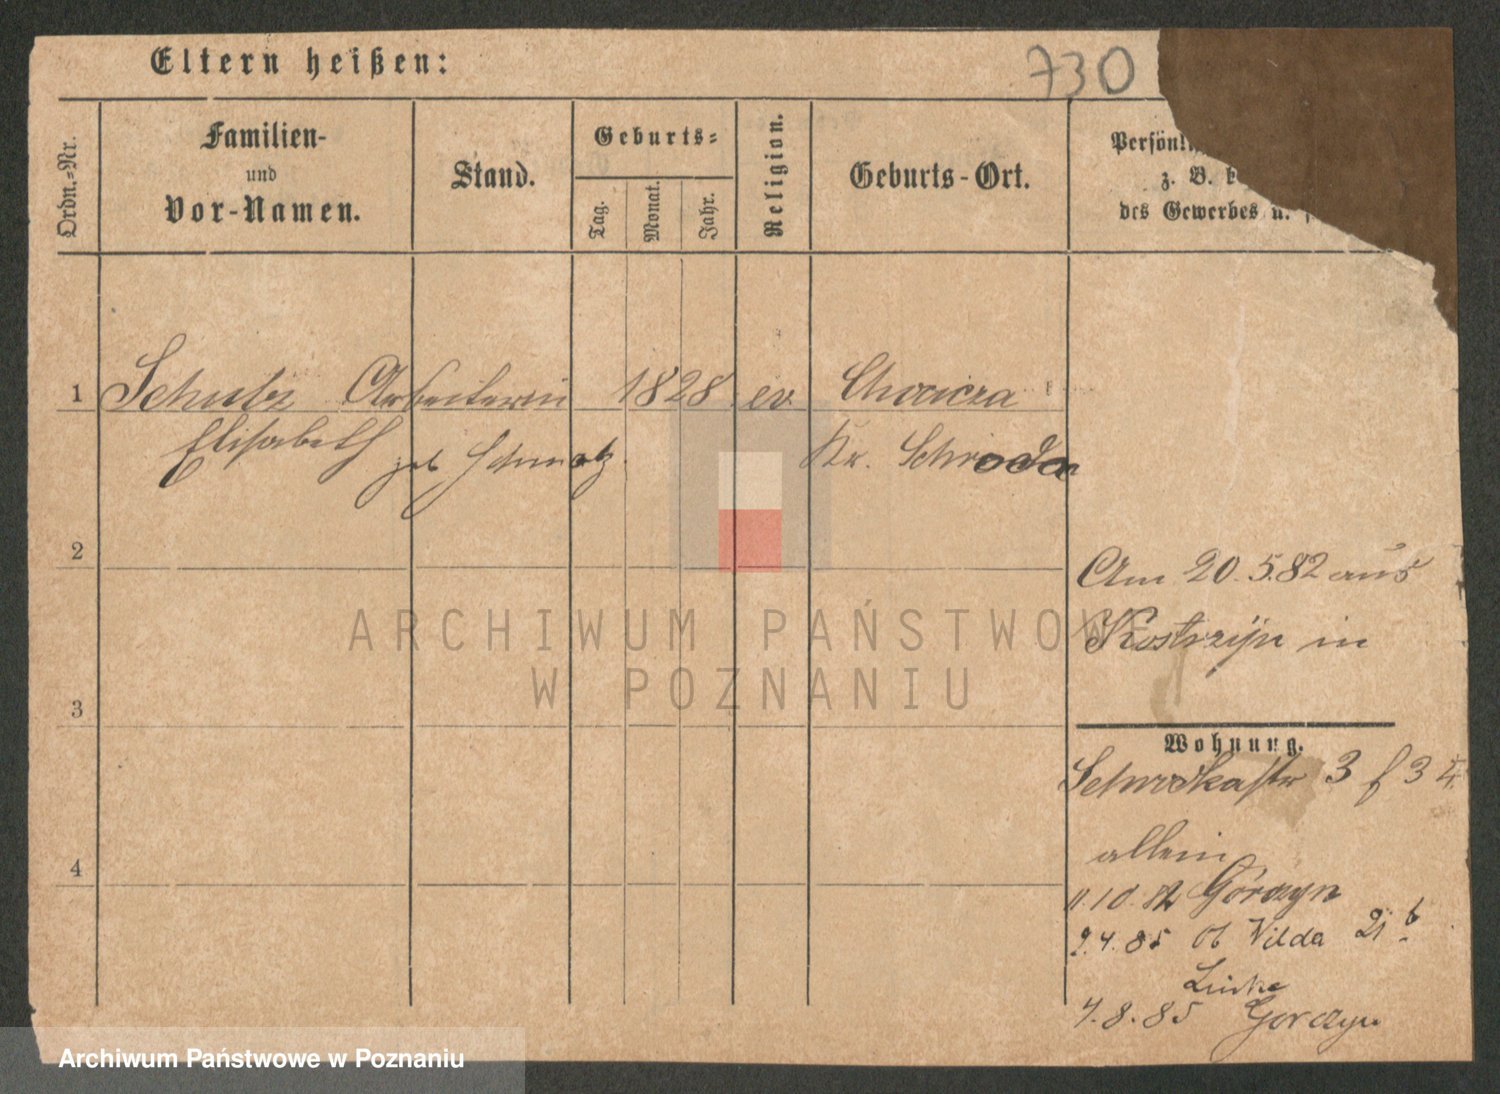 Eltern heißen:
730
Ordn.-Nr.
Familien-
und
Vor-Namen.
Stand.
Geburts-
Tag.
Monat.
Jahr.
Religion.
Geburts-Ort.
Persönl
z. B.
des Gewerbes u.
1 Schulz Arbeiterin 1828 ev. Chocicza
Elisabeth geb Schmalz. Kr. Schroda
2
Am 20.5.82 aus
Kostrzyn in
3
Wohnung.
3 f 3 4
4
allein
11.10.82 Górczyn
9.4.85 Ob Wilda 21 b
Linke
4.8.85 Gorczyn
ARCHIWUM PAŃSTWOWE
W POZNANIU
Archiwum Państwowe w Poznaniu